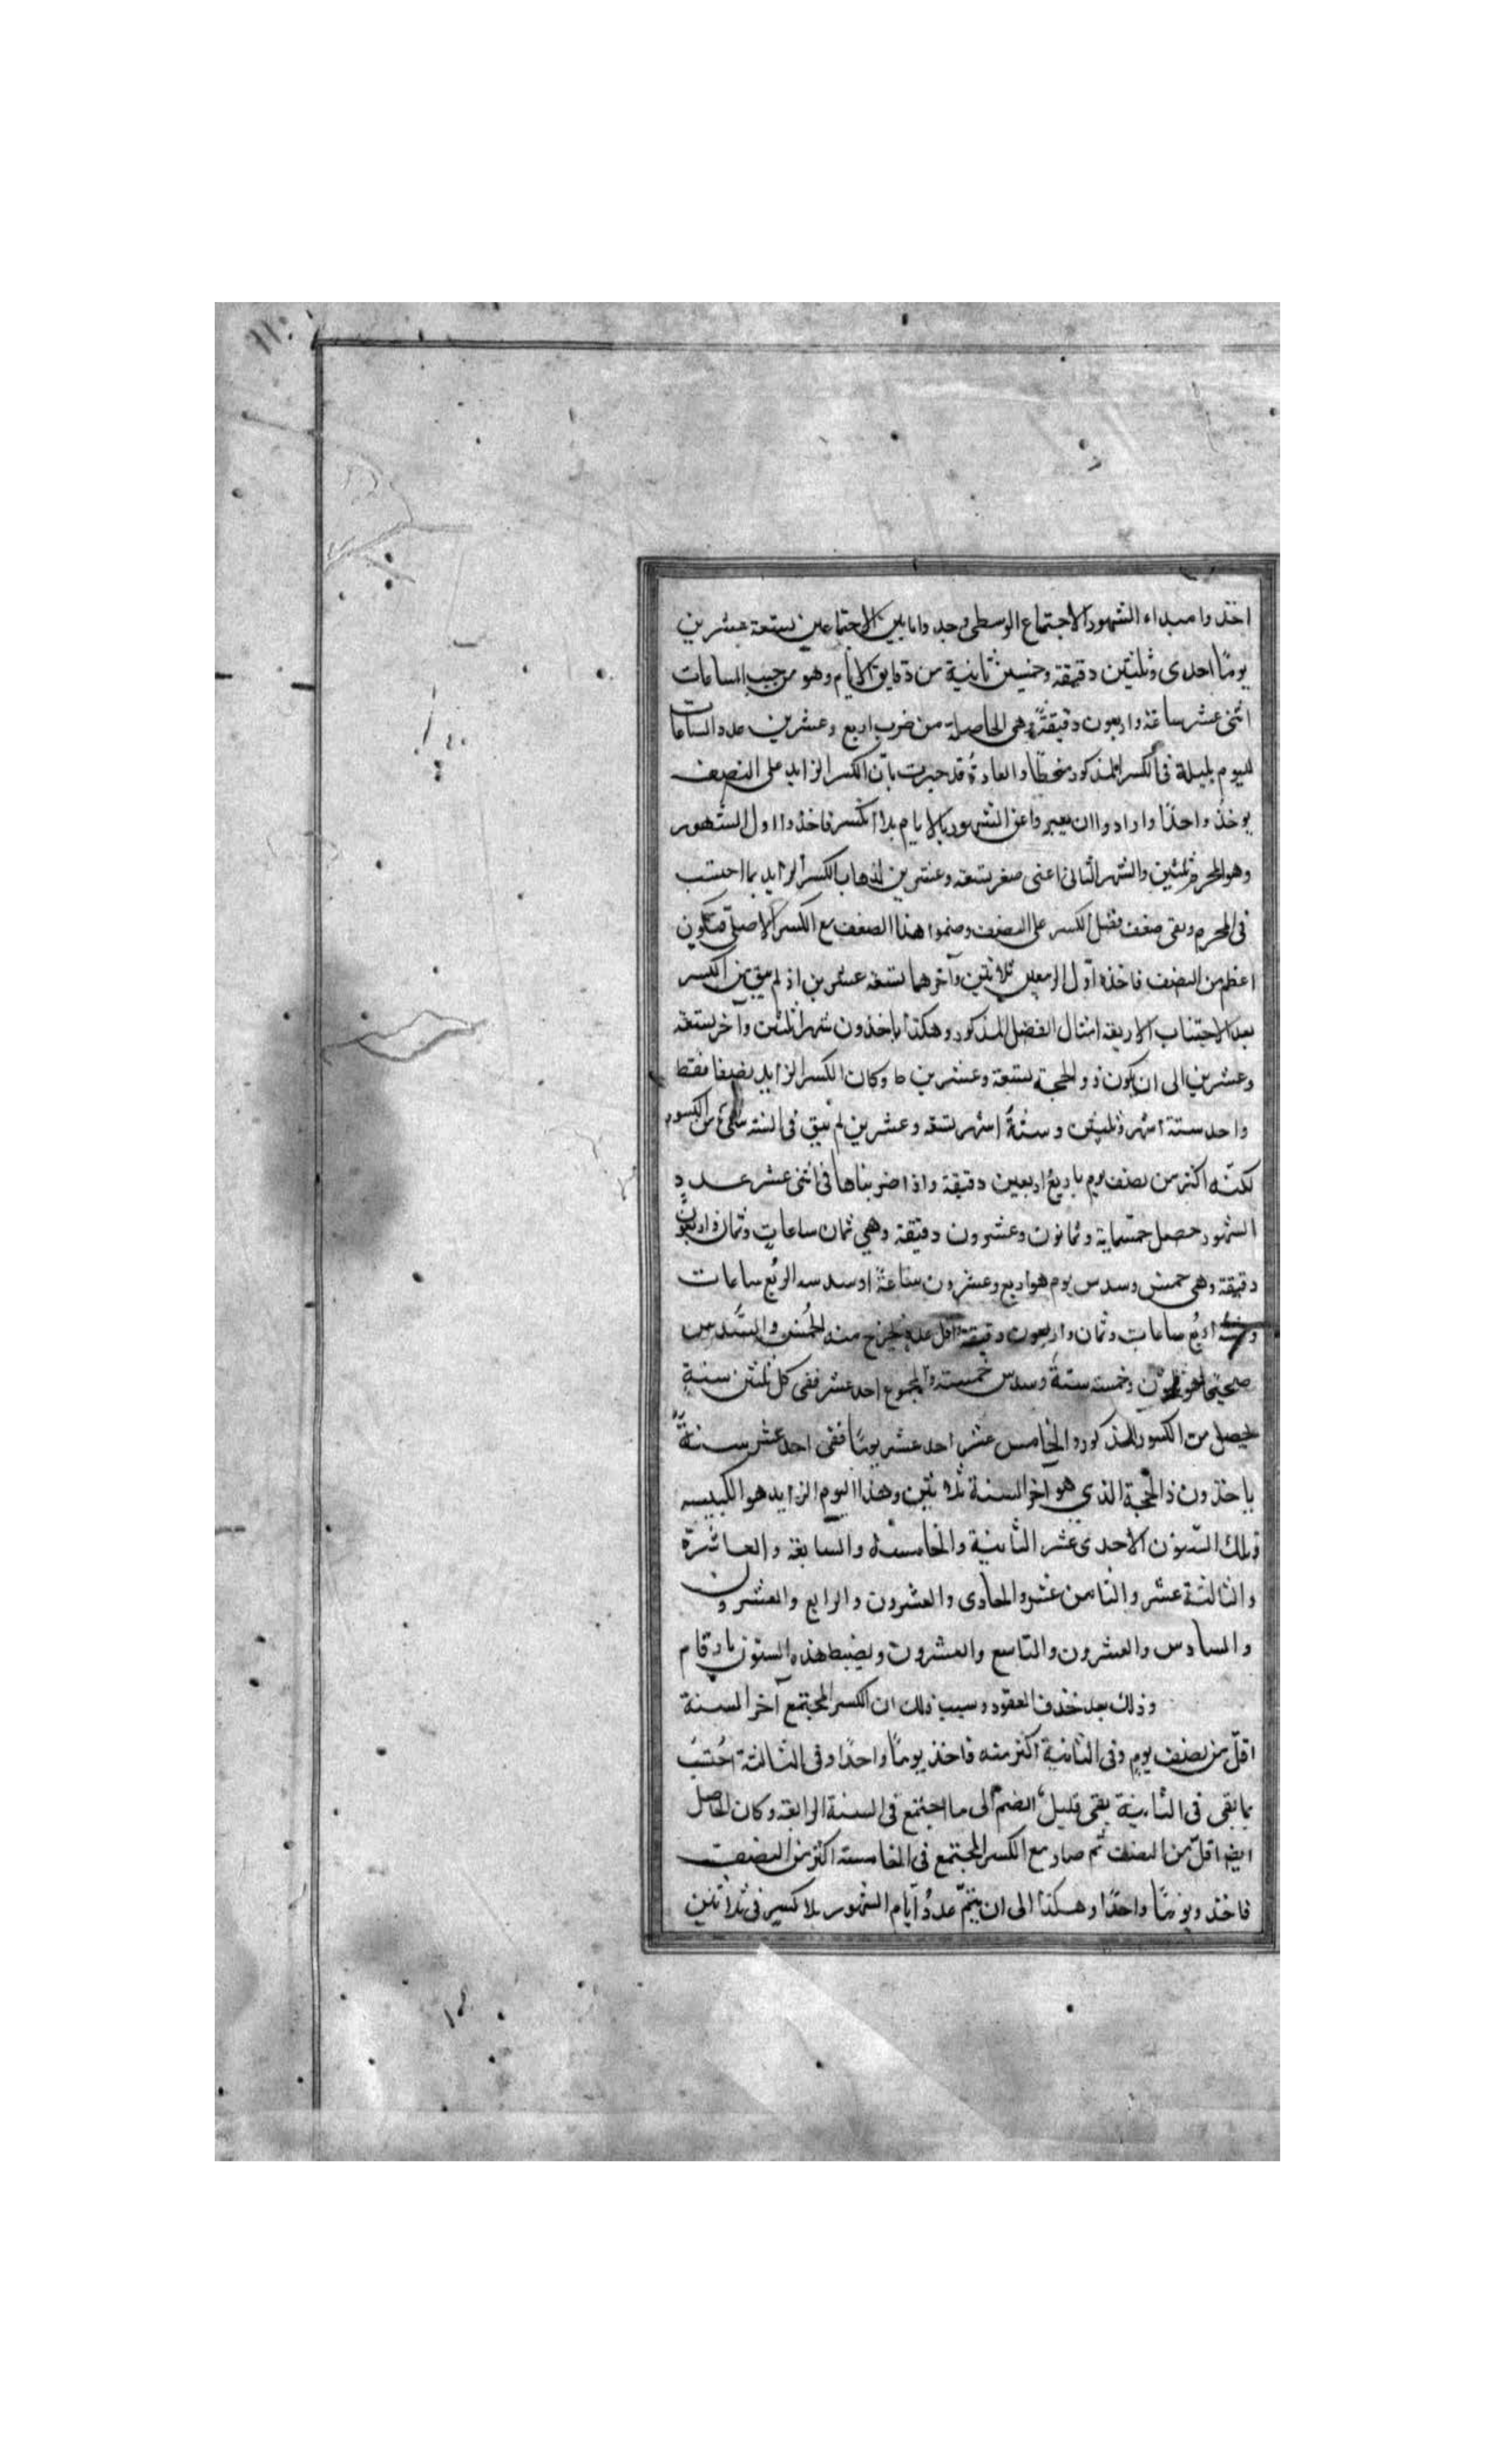 اخذوا مبداء الشهور الاجتماع الوسطى وجدوا ما بين الاجتماعين بستعة عشرين
يومًا احدى وثلثين دقيقة وخمسين ثانية من دقايق الايام وهو من حيث الساعات
اثنى عشر ساعة واربعون دقيقة وهى الحاصلة من ضرب اربع وعشرين عدد الساعات
لليوم بليلة فى الكسر المذكور منحطا والعادة قد جرت بان الكسر الزايد على النصف
يوخذ واحدًا وارادوا ان يعبروا عن الشهور بالايام بلا كسر فاخذوا اول الشهور
وهو المحرم ثلثين والشهر الثانى اعنى صفر بتسعة وعشرين لذهاب الكسر الزايد بما احتسب
فى المحرم وبقى ضعف فضل الكسر على النصف وضموا هذا الضعف مع الكسر الاصلى فيكون
اعظم من النصف فاخذه اول الربيعين ثلاثين وآخرهما بتسعة عشرين اذ لم يبق من الكسر
بعد الاجتناب الاربعة امثال الفضل المذكور وهكذا ياخذون شهرا ثلثين وآخر بتسعة
وعشرين الى ان يكون ذو الحجة بتسعة وعشرين ط وكان الكسر الزايد نصفا فقط
واحد ستة اشهر ثلثين وستة اشهر تسعة وعشرين لم يبق فى السنة شئ من الكسور
لكنه اكثر من نصف يوم باربع اربعين دقيقة واذا ضربناها فى اثنى عشر عدد
الشهور حصل خمسماية وثمانون وعشرون دقيقة وهي ثمان ساعات وثمان واربعون
دقيقة وهى خمس وسدس يوم هو اربع وعشرون ساعة اذ سدسه اربع ساعات
وخمسه اربع ساعات وثمان واربعون دقيقة واقل عدد يخرج منه الخمس والسدس
صحيحا هو ثلثون وخمسه ستة وسدس خمسته والمجموع احد عشر ففى كل ثلثين سنة
يحصل من الكسور المذكورة الخامس عشر احد عشر يومًا ففى احد عشر سنة
ياخذون ذا الحجة الذي هو اخر السنة ثلاثين وهذا اليوم الزايد هو الكبيسه
وتلك السنون الاحدى عشر الثانية والخامسة والسابعة والعاشرة
والثالثة عشر والثامن عشر والحادى والعشرون والرابع والعشرون
والسادس والعشرون والتاسع والعشرون ويضبط هذه السنون بارقام
وذلك بعد حذف العقود وسبب ذلك ان الكسر المجتمع آخر السنة
اقل من نصف يوم وفى الثانية اكثر منه فاخذ يومًا واحدًا وفى الثالثة احتسب
بما بقى فى الثانية بقى قليل انضم الى ما اجتمع فى السنة الرابعة وكان الحاصل
ايضا اقل من النصف ثم صار مع الكسر المجتمع فى الخامسة اكثر من النصف
فاخذ ويومًا واحدًا وهكذا الى ان يتم عدد ايام الشهور بلا كسر فى ثلاثين